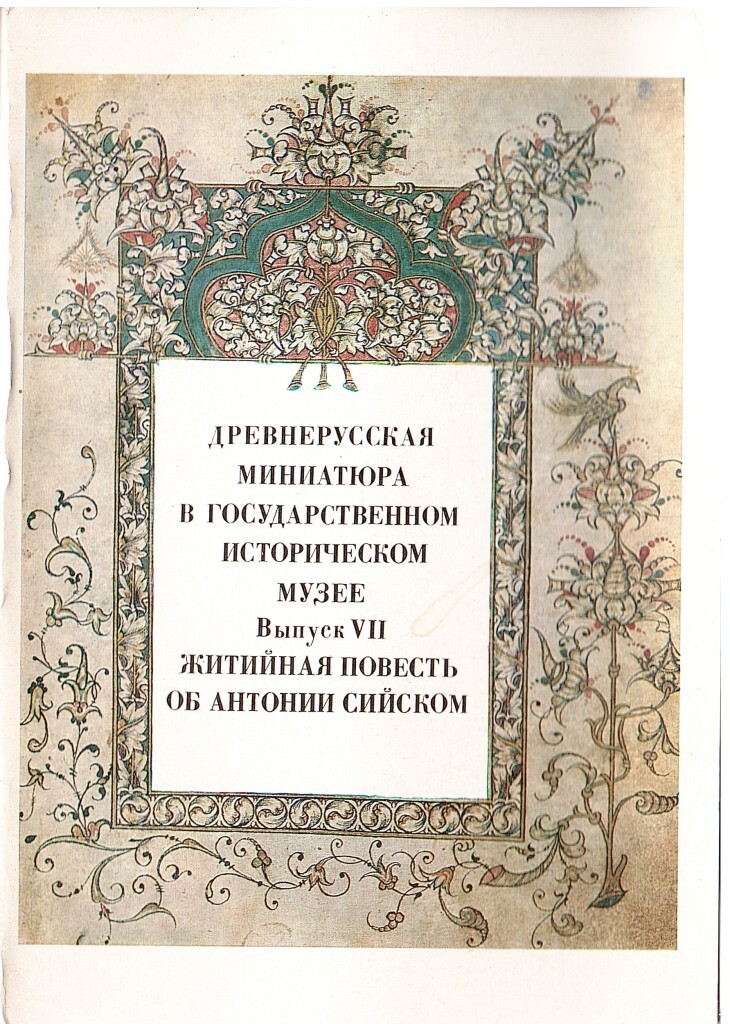 ДРЕВНЕРУССКАЯ
МИНИАТЮРА
В ГОСУДАРСТВЕННОМ
ИСТОРИЧЕСКОМ
МУЗЕЕ
Выпуск VII
ЖИТИЙНАЯ ПОВЕСТЬ
ОБ АНТОНИИ СИЙСКОМ